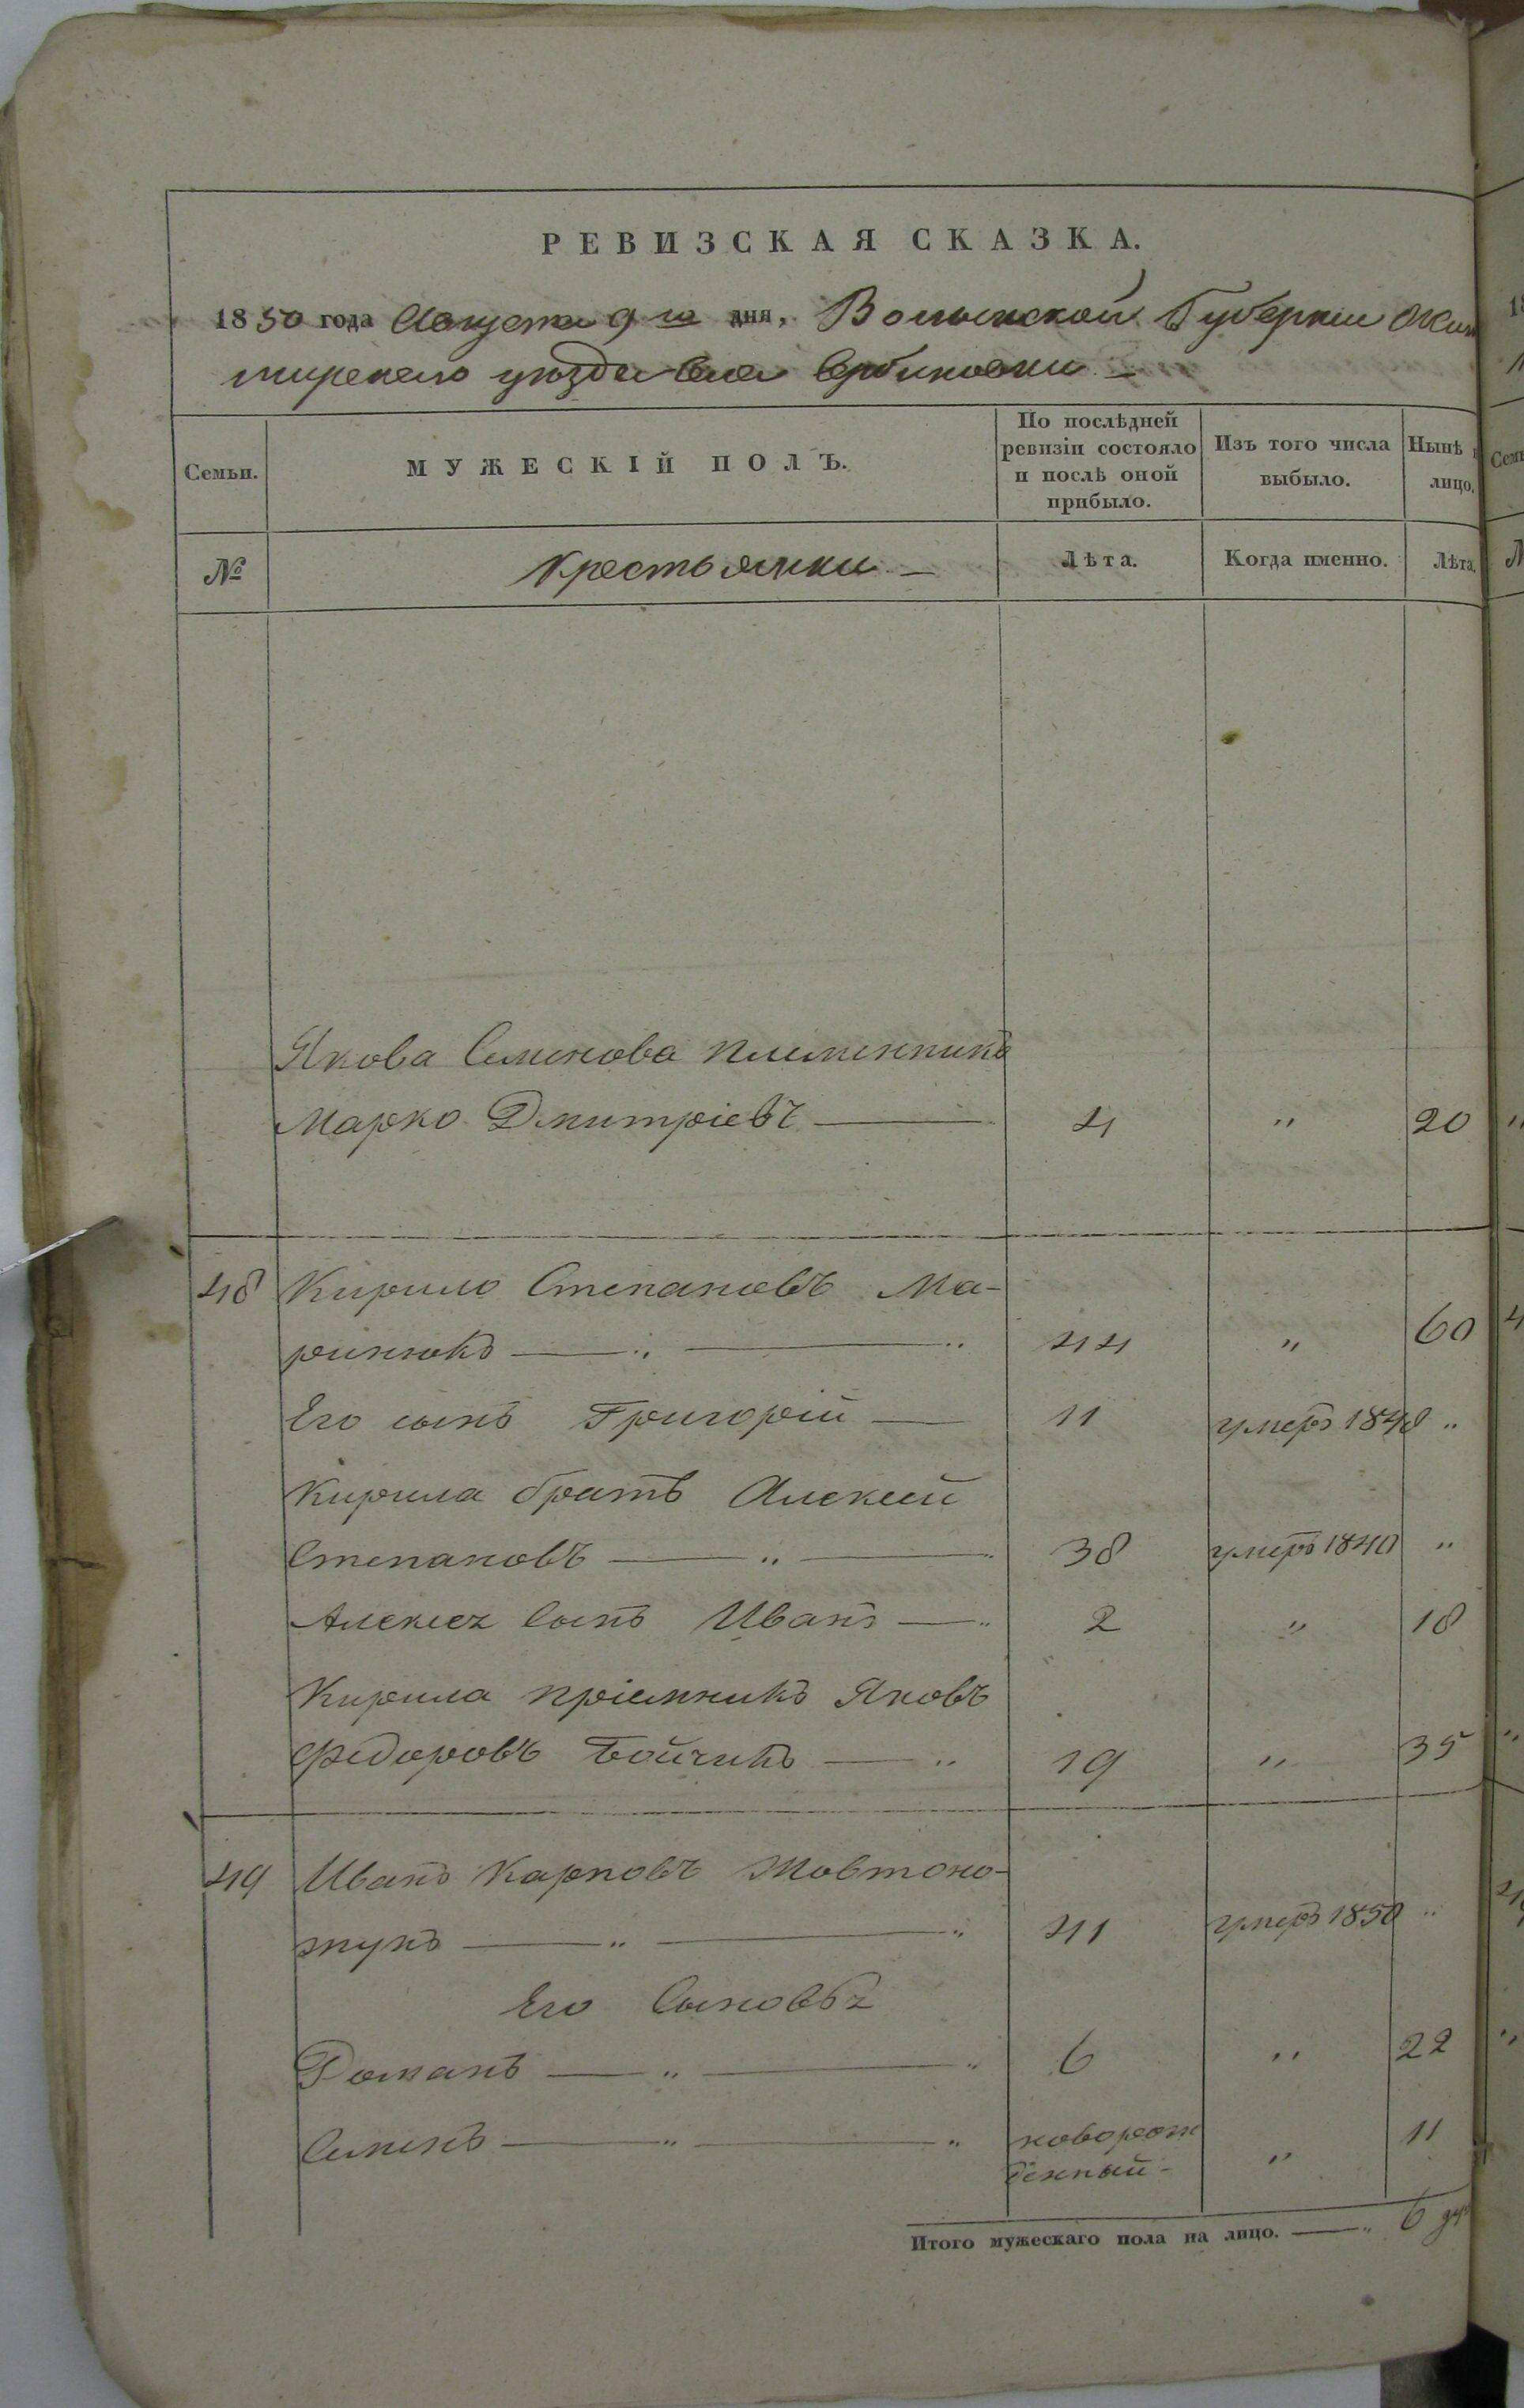 РЕВИЗСКАЯ СКАЗКА.
1850 года Августа 9 го дня, Волынской Губернии Жи
тирскаго уѣзда Села Вербиновки —
Семьи. МУЖЕСКІЙ ПОЛЪ. По послѣдней ревизіи состояло и послѣ оной прибыло. Изъ того числа выбыло. Нынѣ в лицо.
№ Крестьянки — Лѣта. Когда именно. Лѣта.
Якова Семенова племенникъ
Марко Дмитріевъ — 4 " 20
48 Кирило Степановъ Ма-
ринюкъ — " — " 44 " 60
Его сынъ Григорій — 11 умеръ 1848 "
Кирила братъ Алексей
Степановъ — " — " 38 умеръ 1840 "
Алексея Сынъ Иванъ — " 2 " 18
Кирила пріемникъ Яковъ
Федоровъ Бойчикъ — " 19 " 35
49 Иванъ Карповъ Жовтоно-
жукъ — " — " 41 умеръ 1850 "
Его Сыновья
Романъ — " — " 6 " 22
Семенъ — " — " новорож
денный - " 11
Итого мужескаго пола на лицо. — " 6 ду